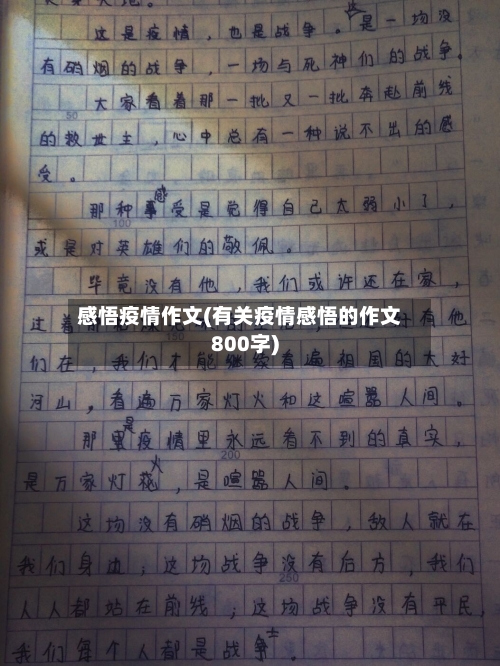 这是疫情，也是战争。这是一场没
有硝烟的战争，一场与死神们的战争。
大家看着那一批又一批奔赴前线
50
的救世主，心中总有一种说不出的感
受。
那种感受是觉得自己太弱小了，
100
或是对英雄们的敬佩。
毕竟没有他，我们或许还在家，
过着
有他
感悟疫情作文(有关疫情感悟的作文
800字)
们在，我们才能继续看遍祖国的大好
河山，看遍万家灯火和这喧嚣人间。
那是疫情里永远看不到的真实，
200
是万家灯火，是喧嚣人间。
这场没有硝烟的战争，敌人就在
我们身边；这场战争没有后方，我们
250
人人都站在前线；这场战争没有平民，
我们每个人都是战士。